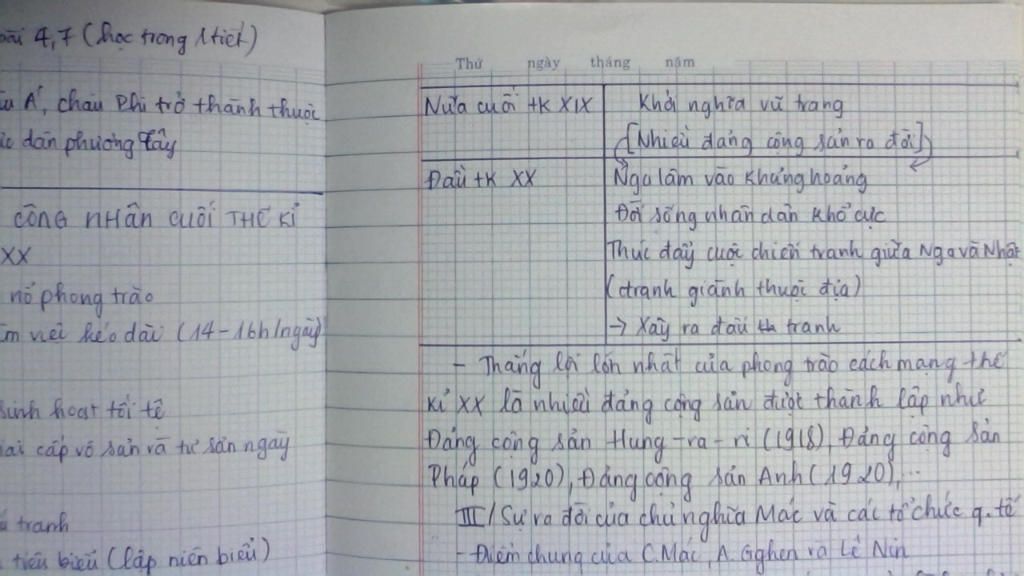 bài 4,7 (học trong 1 tiết)
Á, châu Phi trở thành thuộc
dân phương Tây
CÔNG NHÂN CUỐI THẾ KỈ
XX
nổ phong trào
việc kéo dài (14-16h/ngày)
sinh hoạt tồi tệ
cấp vô sản và tư sản ngày
tranh
tiêu biểu (lập niên biểu)
Thứ ngày tháng năm
Nửa cuối tk XIX
Khởi nghĩa vũ trang
[Nhiều đảng cộng sản ra đời]
Đầu tk XX
Nga lâm vào khủng hoảng
Đời sống nhân dân khổ cực
Thúc đẩy cuộc chiến tranh giữa Nga và Nhật
(tranh giành thuộc địa)
→ Xảy ra đấu tranh
- Thắng lợi lớn nhất của phong trào cách mạng thế
kỉ XX là nhiều đảng cộng sản được thành lập như
Đảng cộng sản Hung-ra-ri (1918), Đảng cộng sản
Pháp (1920), Đảng cộng sản Anh (1920),...
III/ Sự ra đời của chủ nghĩa Mác và các tổ chức q.tế
- Điểm chung của C.Mác, Ă.Gghen và Lê Nin